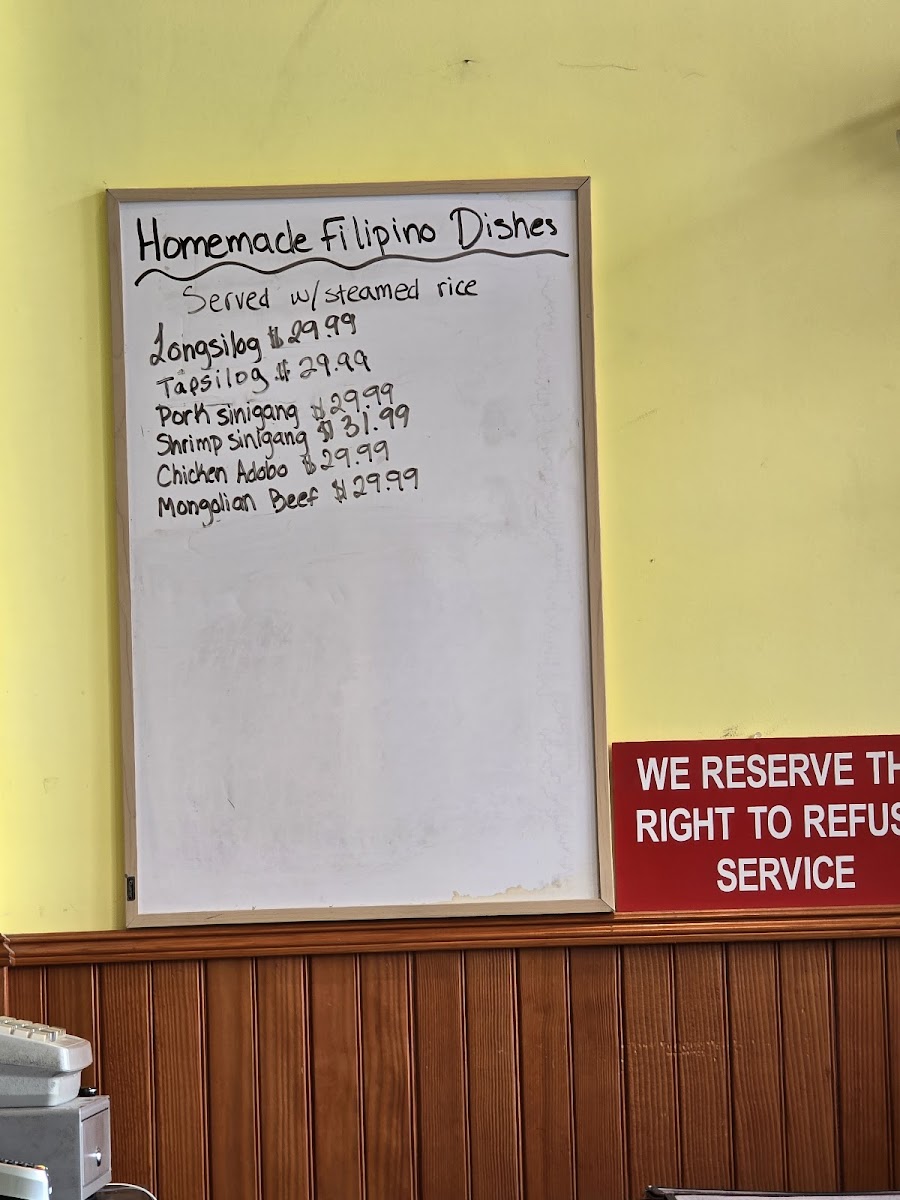 Homemade Filipino Dishes
Served w/steamed rice
Longsilog $29.99
Tapsilog $29.99
Pork sinigang $29.99
Shrimp sinigang $31.99
Chicken Adobo $29.99
Mongolian Beef $29.99
WE RESERVE TH
RIGHT TO REFUS
SERVICE